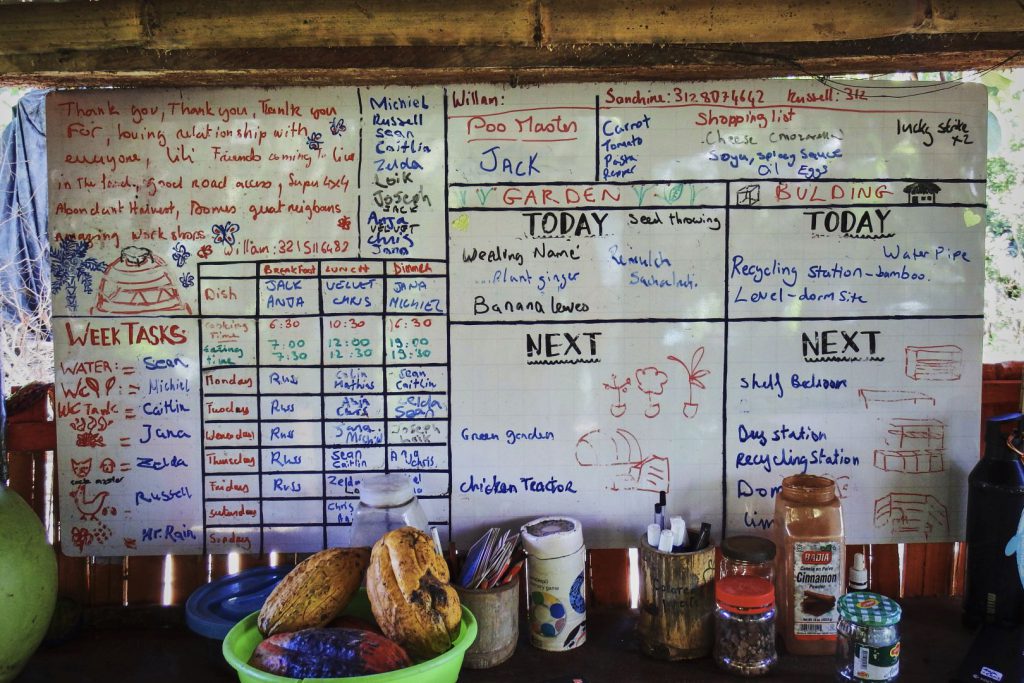 Thank you, Thank you, Thank you
For, loving relationship with
everyone, Lili Friends coming to live
in The land, good road access, Super 4x4
Abondant Harvest, Domes, great neighbors
amazing workshops
Willan: 3215116482
Michiel
Russell
Sean
Caitlin
Zelda
Loik
Joseph
JACK
Anja
VELVET
Chris
Jana
Willan:
Poo Master
JACK
Sanchine: 3128074642 Russell: 312
Shopping list
Carrot
Tomato
Pasta
Pepper
Cheese (mozarella)
Soya, spicy sauce
Oil Eggs
lucky strike
x2
GARDEN
TODAY
Seed throwing
Weading Name
Plant ginger
Banana leaves
NEXT
Green garden
Chicken Tractor
BULDING
TODAY
Water Pipe
Recycling station-bamboo.
Level-dorm site
NEXT
Shelf Bedroom
Dry station
Recycling Station
Dom
WEEK TASKS:
WATER: = Sean
WC = Michiel
WC Tank = Caitlin
= Jana
= Zelda
Russell
Mr. Rain
Breakfast Lunch Dinner
Dish JACK VELVET JANA
ANJA CHRIS MICHIEL
Cooking Time 6:30 10:30 16:30
Eating time 7:00 12:00 19:00
7:30 12:30 19:30
Monday Russ Colin Sean
Mathias Caitlin
Tuesday Russ Anja Zelda
Chris Sean
Wenesday Russ Jana Joseph
Michiel Loik
Thursday Russ Sean Anja
Caitlin Chris
Friday Russ Zelda
Saturday Chris
Sunday
BADIA
Canela en Polvo
Cinnamon
Powder